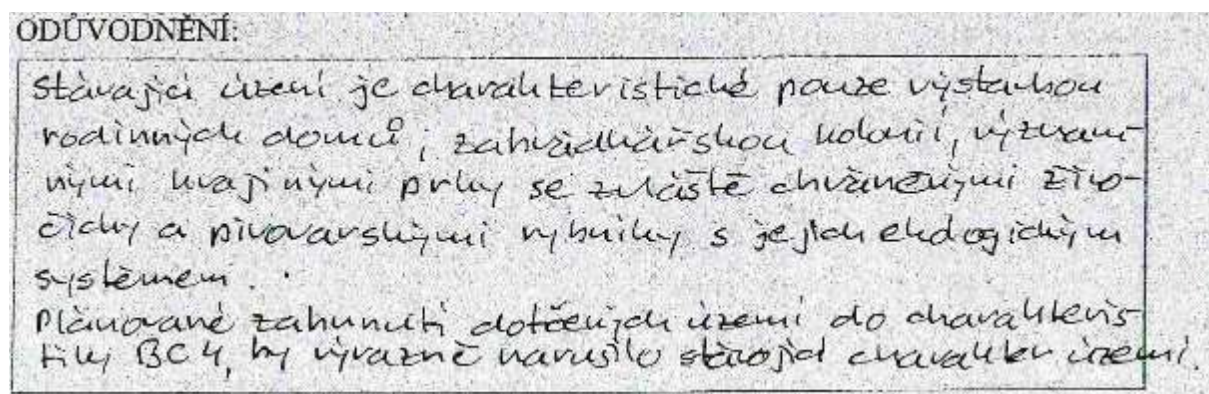 ODŮVODNĚNÍ:
Stávající území je charakteristické pouze výstavbou
rodinných domů, zahrádkářskou kolonií, význam-
nými krajinými prky se zvláště chráněnými živo-
čichy a pivovarskými rybníky s jejich ekologickým
systémem.
Plánované zahrnutí dotčených území do charakteris-
tiky BC4, by výrazně narušilo stávající charakter území.